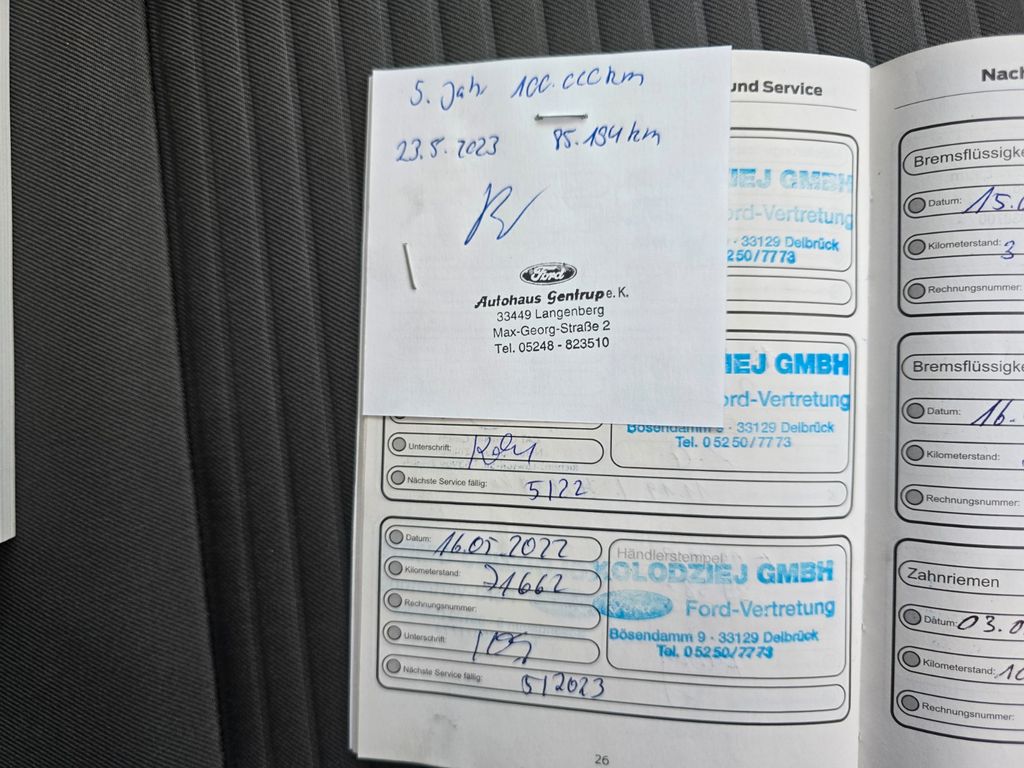 5. Jahr 100.000 km
23.5.2023 85.194 km
Ford
Autohaus Gentrup e. K.
33449 Langenberg
Max-Georg-Straße 2
Tel. 05248 - 823510
und Service
IEJ GMBH
ord-Vertretung
· 33129 Delbrück
250/7773
IEJ GMBH
ord-Vertretung
Bösendamm 9 · 33129 Delbrück
Tel. 05250/7773
Unterschrift:
Nächste Service fällig: 5/22
Datum: 16.05.2022
Kilometerstand: 71662
Rechnungsnummer:
Unterschrift:
Nächste Service fällig: 5/2023
Händlerstempel
KOLODZIEJ GMBH
Ford-Vertretung
Bösendamm 9 · 33129 Delbrück
Tel. 05250/7773
26
Nach
Bremsflüssigke
Datum: 15.0
Kilometerstand: 3
Rechnungsnummer:
Bremsflüssigke
Datum: 16.
Kilometerstand:
Rechnungsnummer:
Zahnriemen
Datum: 03.0
Kilometerstand: 10
Rechnungsnummer: